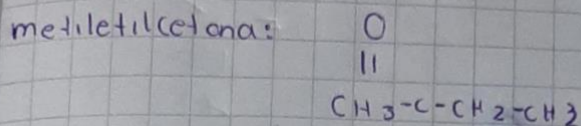 metiletilcetona: O
||
CH3-C-CH2-CH3